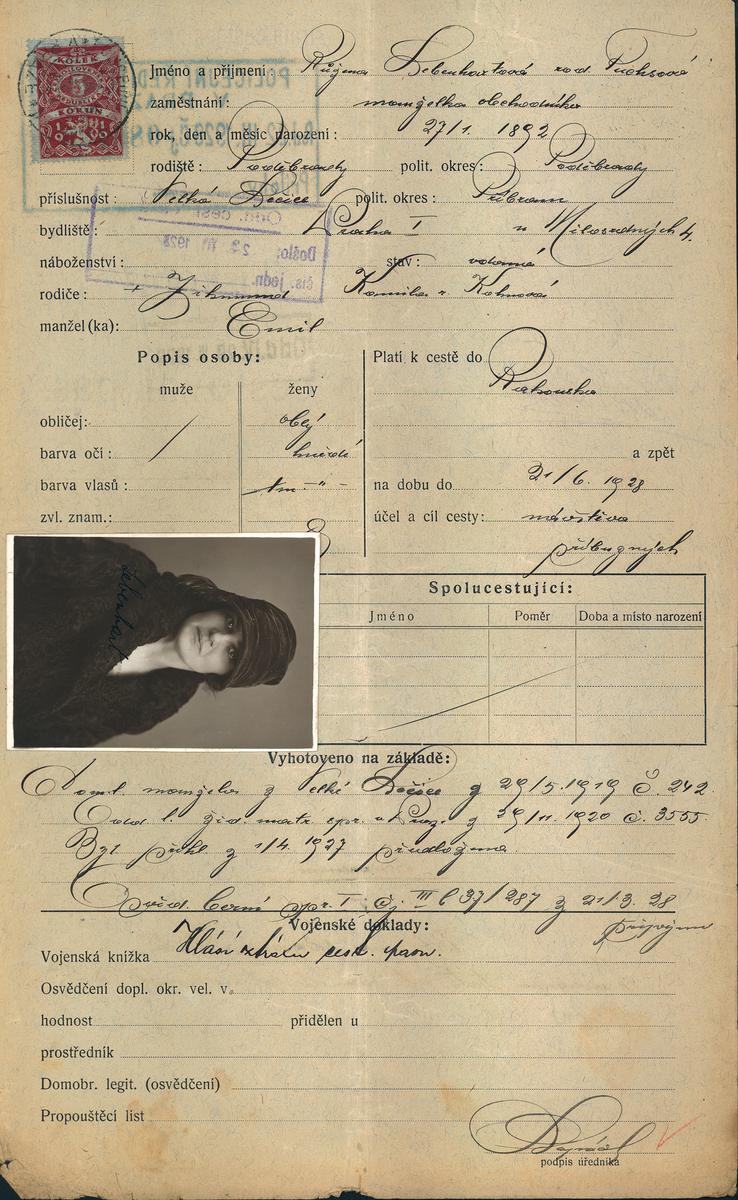 KOLEK
5
KORUN
Jméno a příjmení: Růžena Lebenhartová roz. Fuchsová
zaměstnání: manželka obchodníka
rok, den a měsíc narození: 27/1. 1892
rodiště: Poděbrady polit. okres: Poděbrady
příslušnost: Velká Lečice polit. okres: Příbram
bydliště: Praha I u Milosrdných 4.
náboženství: stav: vdaná
rodiče: + Zikmund Kamila r. Kohnová
manžel (ka): Emil
Popis osoby:
muže ženy
obličej: oblý
barva očí: hnědé
barva vlasů: tm. -"-
zvl. znam.:
Platí k cestě do
Rakouska
a zpět
na dobu do 21/6. 1928
účel a cíl cesty: návštěva
příbuzných
Lebenhart
Spolucestující:
Jméno Poměr Doba a místo narození
Vyhotoveno na základě:
Doml. manžela z Velké Lečice z 29/5. 1919 č. 242
Odd. l. žid. matr. v Praze z 1920 č. 3555.
Byt. přihl. z 1/4. 1927 předložena
I čj. III 37/287 z 21/3. 28
Vojenské doklady:
Vojenská knížka Hlásí ztrátu cest. pasu.
Osvědčení dopl. okr. vel. v
hodnost přidělen u
prostředník
Domobr. legit. (osvědčení)
Propouštěcí list
podpis úředníka